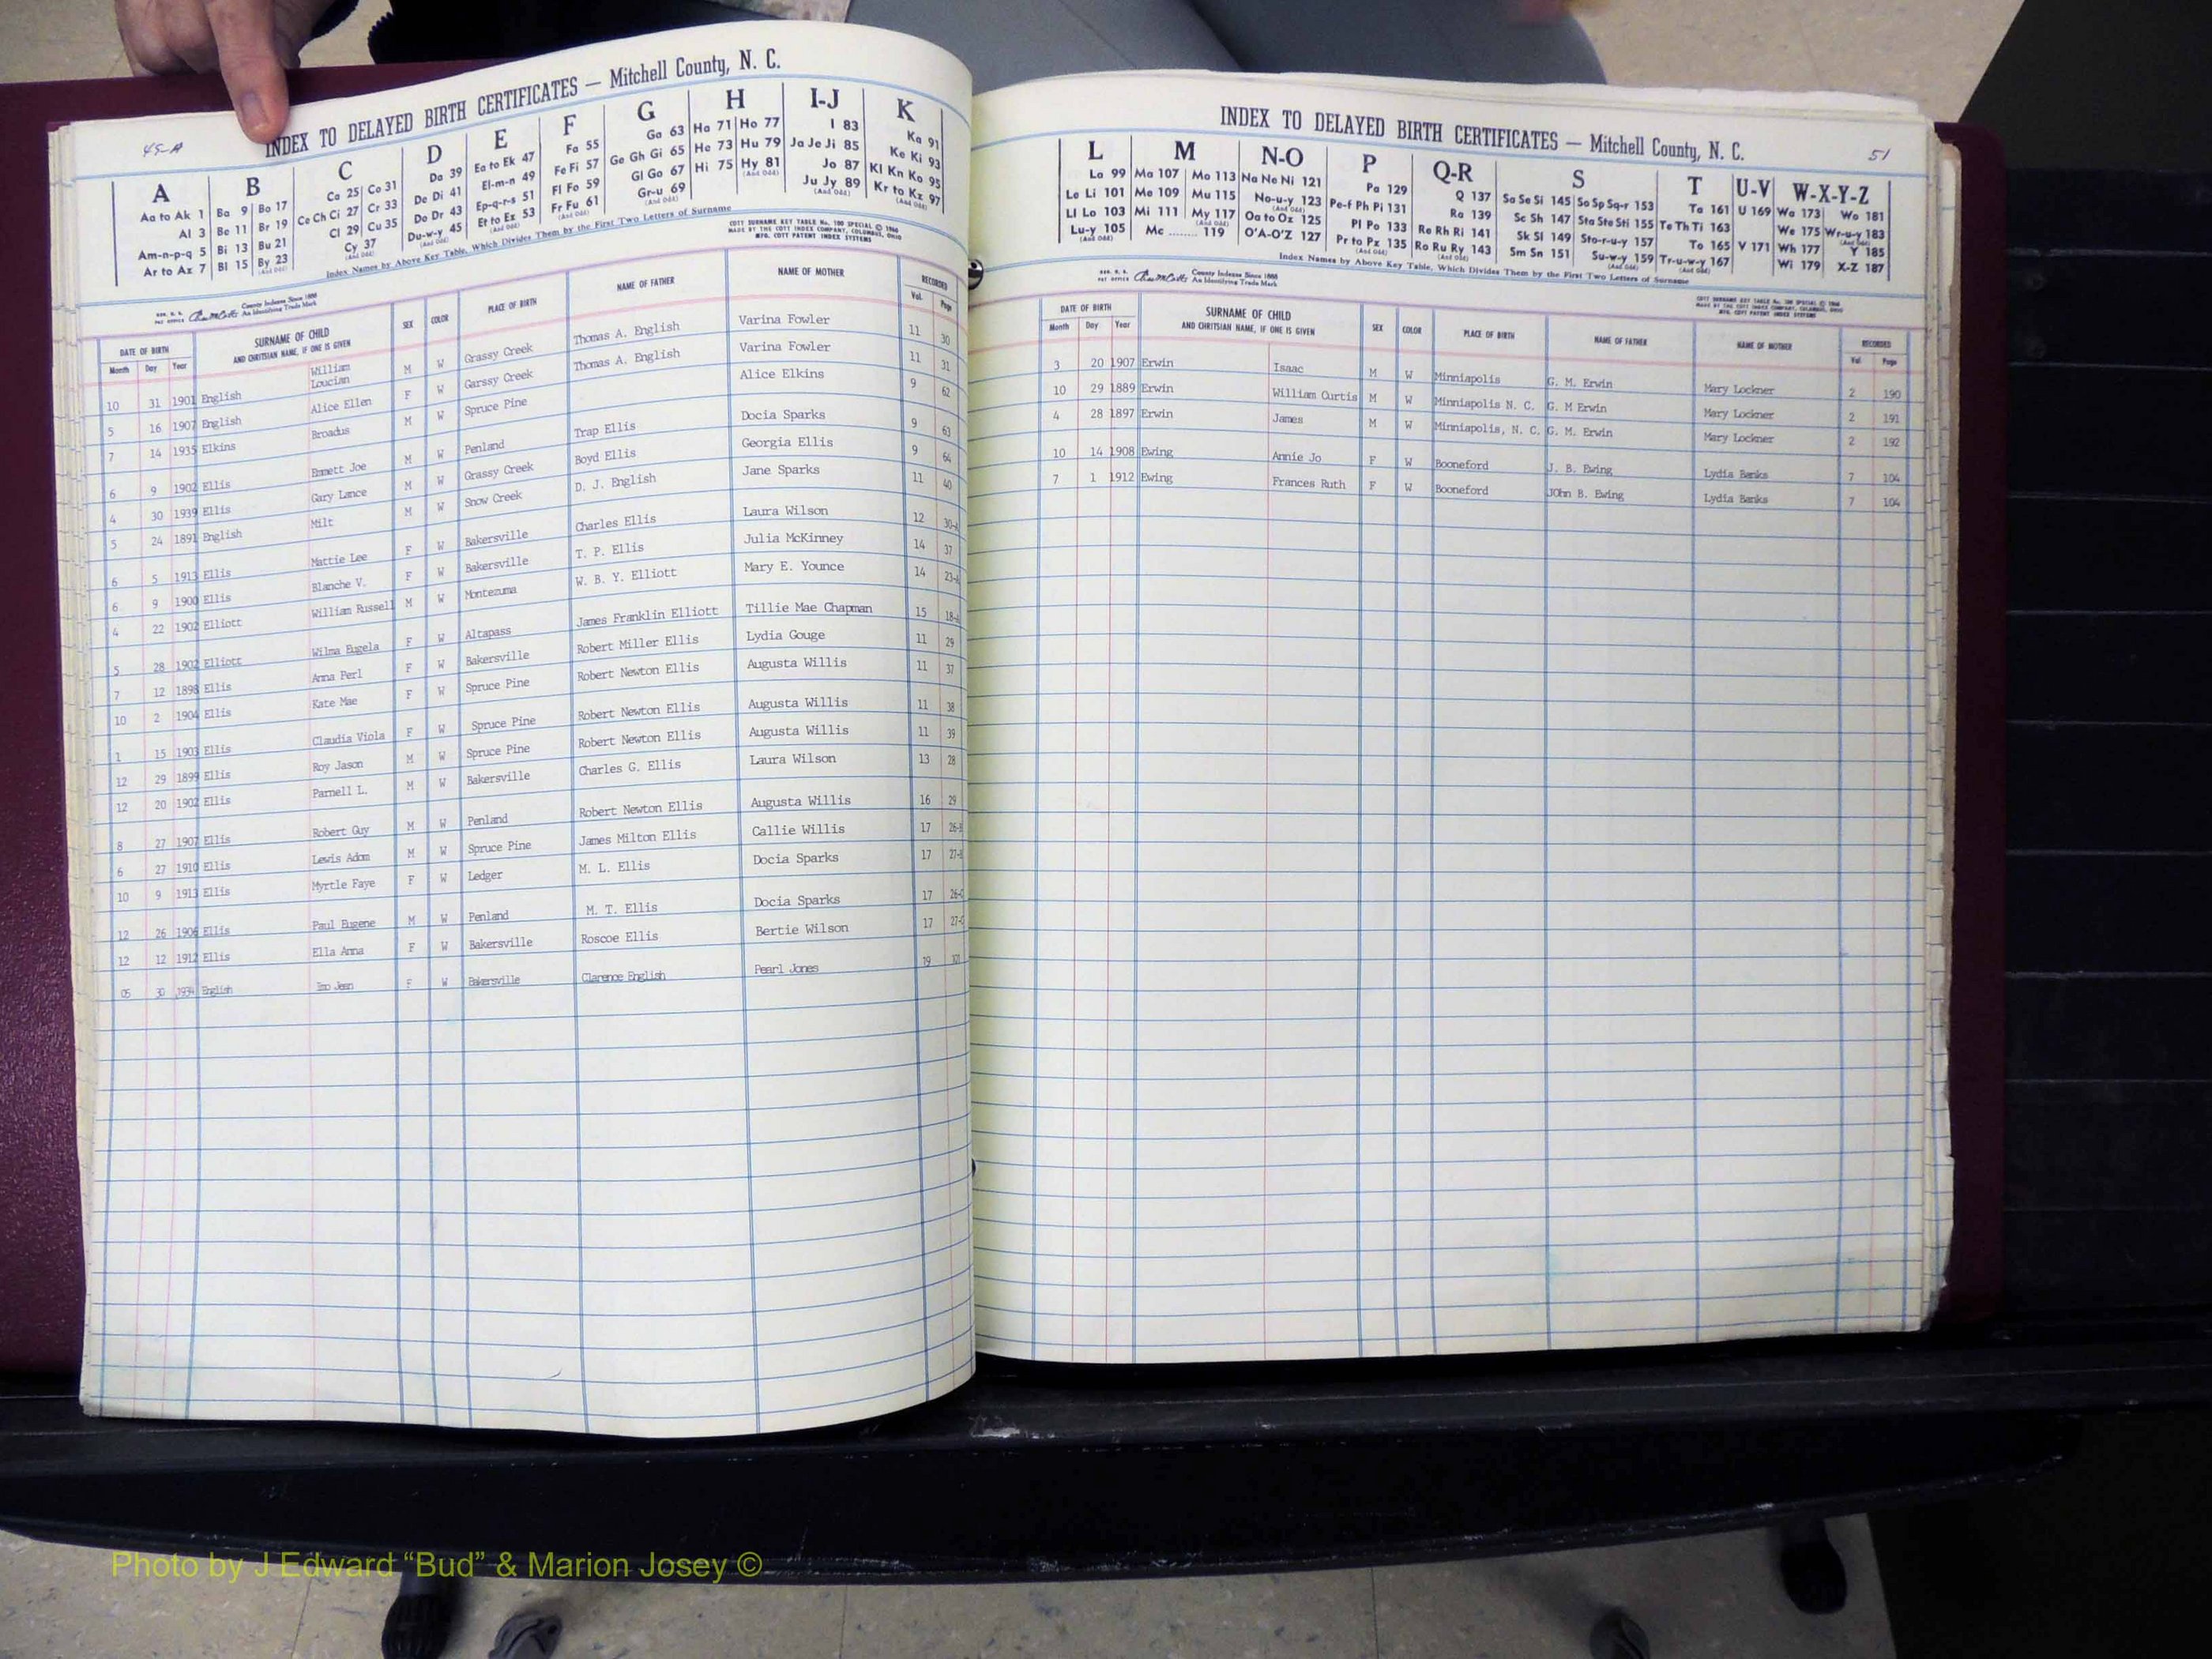 45-A
INDEX TO DELAYED BIRTH CERTIFICATES — Mitchell County, N. C.
A B C D E F G H I-J K
Aa to Ak 1 Ba 9 Bo 17 Ca 25 Co 31 Da 39 Ea to Ek 47 Fa 55 Ga 63 Ha 71 Ho 77 I 83 Ka 91
Al 3 Be 11 Br 19 Ce Ch Ci 27 Cr 33 De Di 41 El-m-n 49 Fe Fi 57 Ge Gh Gi 65 He 73 Hu 79 Ja Je Ji 85 Ke Ki 93
Am-n-p-q 5 Bi 13 Bu 21 Cl 29 Cu 35 Do Dr 43 Ep-q-r-s 51 Fl Fo 59 Gl Go 67 Hi 75 Hy 81 Jo 87 Kl Kn Ko 95
Ar to Az 7 Bl 15 By 23 Cy 37 Du-w-y 45 Et to Ez 53 Fr Fu 61 Gr-u 69 Ju Jy 89 Kr to Kz 97
Index Names by Above Key Table, Which Divides Them by the First Two Letters of Surname
COTT SURNAME KEY TABLE No. 100 SPECIAL © 1966
MADE BY THE COTT INDEX COMPANY, COLUMBUS, OHIO
MFG. COTT PATENT INDEX SYSTEMS
County Indexes Since 1888
An Identifying Trade Mark
DATE OF BIRTH SURNAME OF CHILD SEX COLOR PLACE OF BIRTH NAME OF FATHER NAME OF MOTHER RECORDED
Month Day Year AND CHRITSIAN NAME, IF ONE IS GIVEN Vol. Page
10 31 1901 English William Loucian M W Grassy Creek Thomas A. English Varina Fowler 11 30
5 16 1907 English Alice Ellen F W Garssy Creek Thomas A. English Varina Fowler 11 31
7 14 1935 Elkins Broadus M W Spruce Pine Alice Elkins 9 62
6 9 1902 Ellis Emmett Joe M W Penland Trap Ellis Docia Sparks 9 63
4 30 1939 Ellis Gary Lance M W Grassy Creek Boyd Ellis Georgia Ellis 9 64
5 24 1891 English Milt M W Snow Creek D. J. English Jane Sparks 11 40
6 5 1913 Ellis Mattie Lee F W Bakersville Charles Ellis Laura Wilson 12 30-A
6 9 1900 Ellis Blanche V. F W Bakersville T. P. Ellis Julia McKinney 14 37
4 22 1902 Elliott William Russell M W Montezuma W. B. Y. Elliott Mary E. Younce 14 23-A
5 28 1902 Elliott Wilma Eugela F W Altapass James Franklin Elliott Tillie Mae Chapman 15 18-A
7 12 1898 Ellis Anna Perl F W Bakersville Robert Miller Ellis Lydia Gouge 11 29
10 2 1904 Ellis Kate Mae F W Spruce Pine Robert Newton Ellis Augusta Willis 11 37
1 15 1903 Ellis Claudia Viola F W Spruce Pine Robert Newton Ellis Augusta Willis 11 38
12 29 1899 Ellis Roy Jason M W Spruce Pine Robert Newton Ellis Augusta Willis 11 39
12 20 1902 Ellis Parnell L. M W Bakersville Charles G. Ellis Laura Wilson 13 28
8 27 1907 Ellis Robert Guy M W Penland Robert Newton Ellis Augusta Willis 16 29
6 27 1910 Ellis Lewis Adom M W Spruce Pine James Milton Ellis Callie Willis 17 26-B
10 9 1913 Ellis Myrtle Faye F W Ledger M. L. Ellis Docia Sparks 17 27-B
12 26 1906 Ellis Paul Eugene M W Penland M. T. Ellis Docia Sparks 17 26-C
12 12 1912 Ellis Ella Anna F W Bakersville Roscoe Ellis Bertie Wilson 17 27-C
05 30 1934 English Imo Jean F W Bakersville Clarence English Pearl Jones 19
51
INDEX TO DELAYED BIRTH CERTIFICATES — Mitchell County, N. C.
L M N-O P Q-R S T U-V W-X-Y-Z
La 99 Ma 107 Mo 113 Na Ne Ni 121 Pa 129 Q 137 Sa Se Si 145 So Sp Sq-r 153 Ta 161 U 169 Wa 173 Wo 181
Le Li 101 Me 109 Mu 115 No-u-y 123 Pe-f Ph Pi 131 Ra 139 Sc Sh 147 Sta Ste Sti 155 Te Th Ti 163 We 175 Wr-u-y 183
Ll Lo 103 Mi 111 My 117 Oa to Oz 125 Pl Po 133 Re Rh Ri 141 Sk Sl 149 Sto-r-u-y 157 To 165 V 171 Wh 177 Y 185
Lu-y 105 Mc ........ 119 O'A-O'Z 127 Pr to Pz 135 Ro Ru Ry 143 Sm Sn 151 Su-w-y 159 Tr-u-w-y 167 Wi 179 X-Z 187
Index Names by Above Key Table, Which Divides Them by the First Two Letters of Surname
County Indexes Since 1888
An Identifying Trade Mark
COTT SURNAME KEY TABLE No. 100 SPECIAL © 1966
MADE BY THE COTT INDEX COMPANY, COLUMBUS, OHIO
MFG. COTT PATENT INDEX SYSTEMS
DATE OF BIRTH SURNAME OF CHILD SEX COLOR PLACE OF BIRTH NAME OF FATHER NAME OF MOTHER RECORDED
Month Day Year AND CHRITSIAN NAME, IF ONE IS GIVEN Vol. Page
3 20 1907 Erwin Isaac M W Minniapolis G. M. Erwin Mary Lockner 2 190
10 29 1889 Erwin William Curtis M W Minniapolis N. C. G. M Erwin Mary Lockner 2 191
4 28 1897 Erwin James M W Minniapolis, N. C. G. M. Erwin Mary Lockner 2 192
10 14 1908 Ewing Annie Jo F W Booneford J. B. Ewing Lydia Banks 7 104
7 1 1912 Ewing Frances Ruth F W Booneford JOhn B. Ewing Lydia Banks 7 104
Photo by J Edward “Bud” & Marion Josey ©